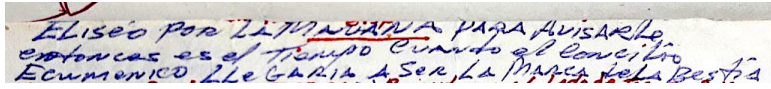 ELISEO POR LA MAÑANA PARA AVISARLE
entonces es el Tiempo CUANDO el Concilio
ECUMENICO LLEGARIA A SER LA MARCA de LA BESTIA